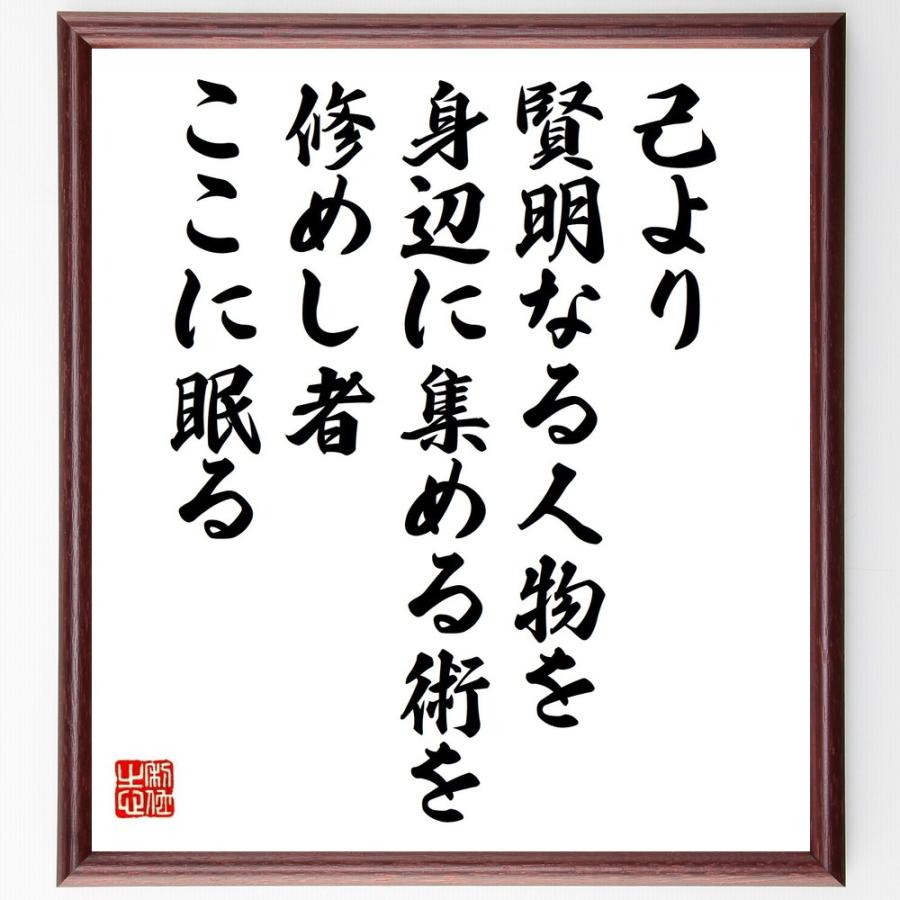 己より
賢明なる人物を
身辺に集める術を
修めし者
ここに眠る